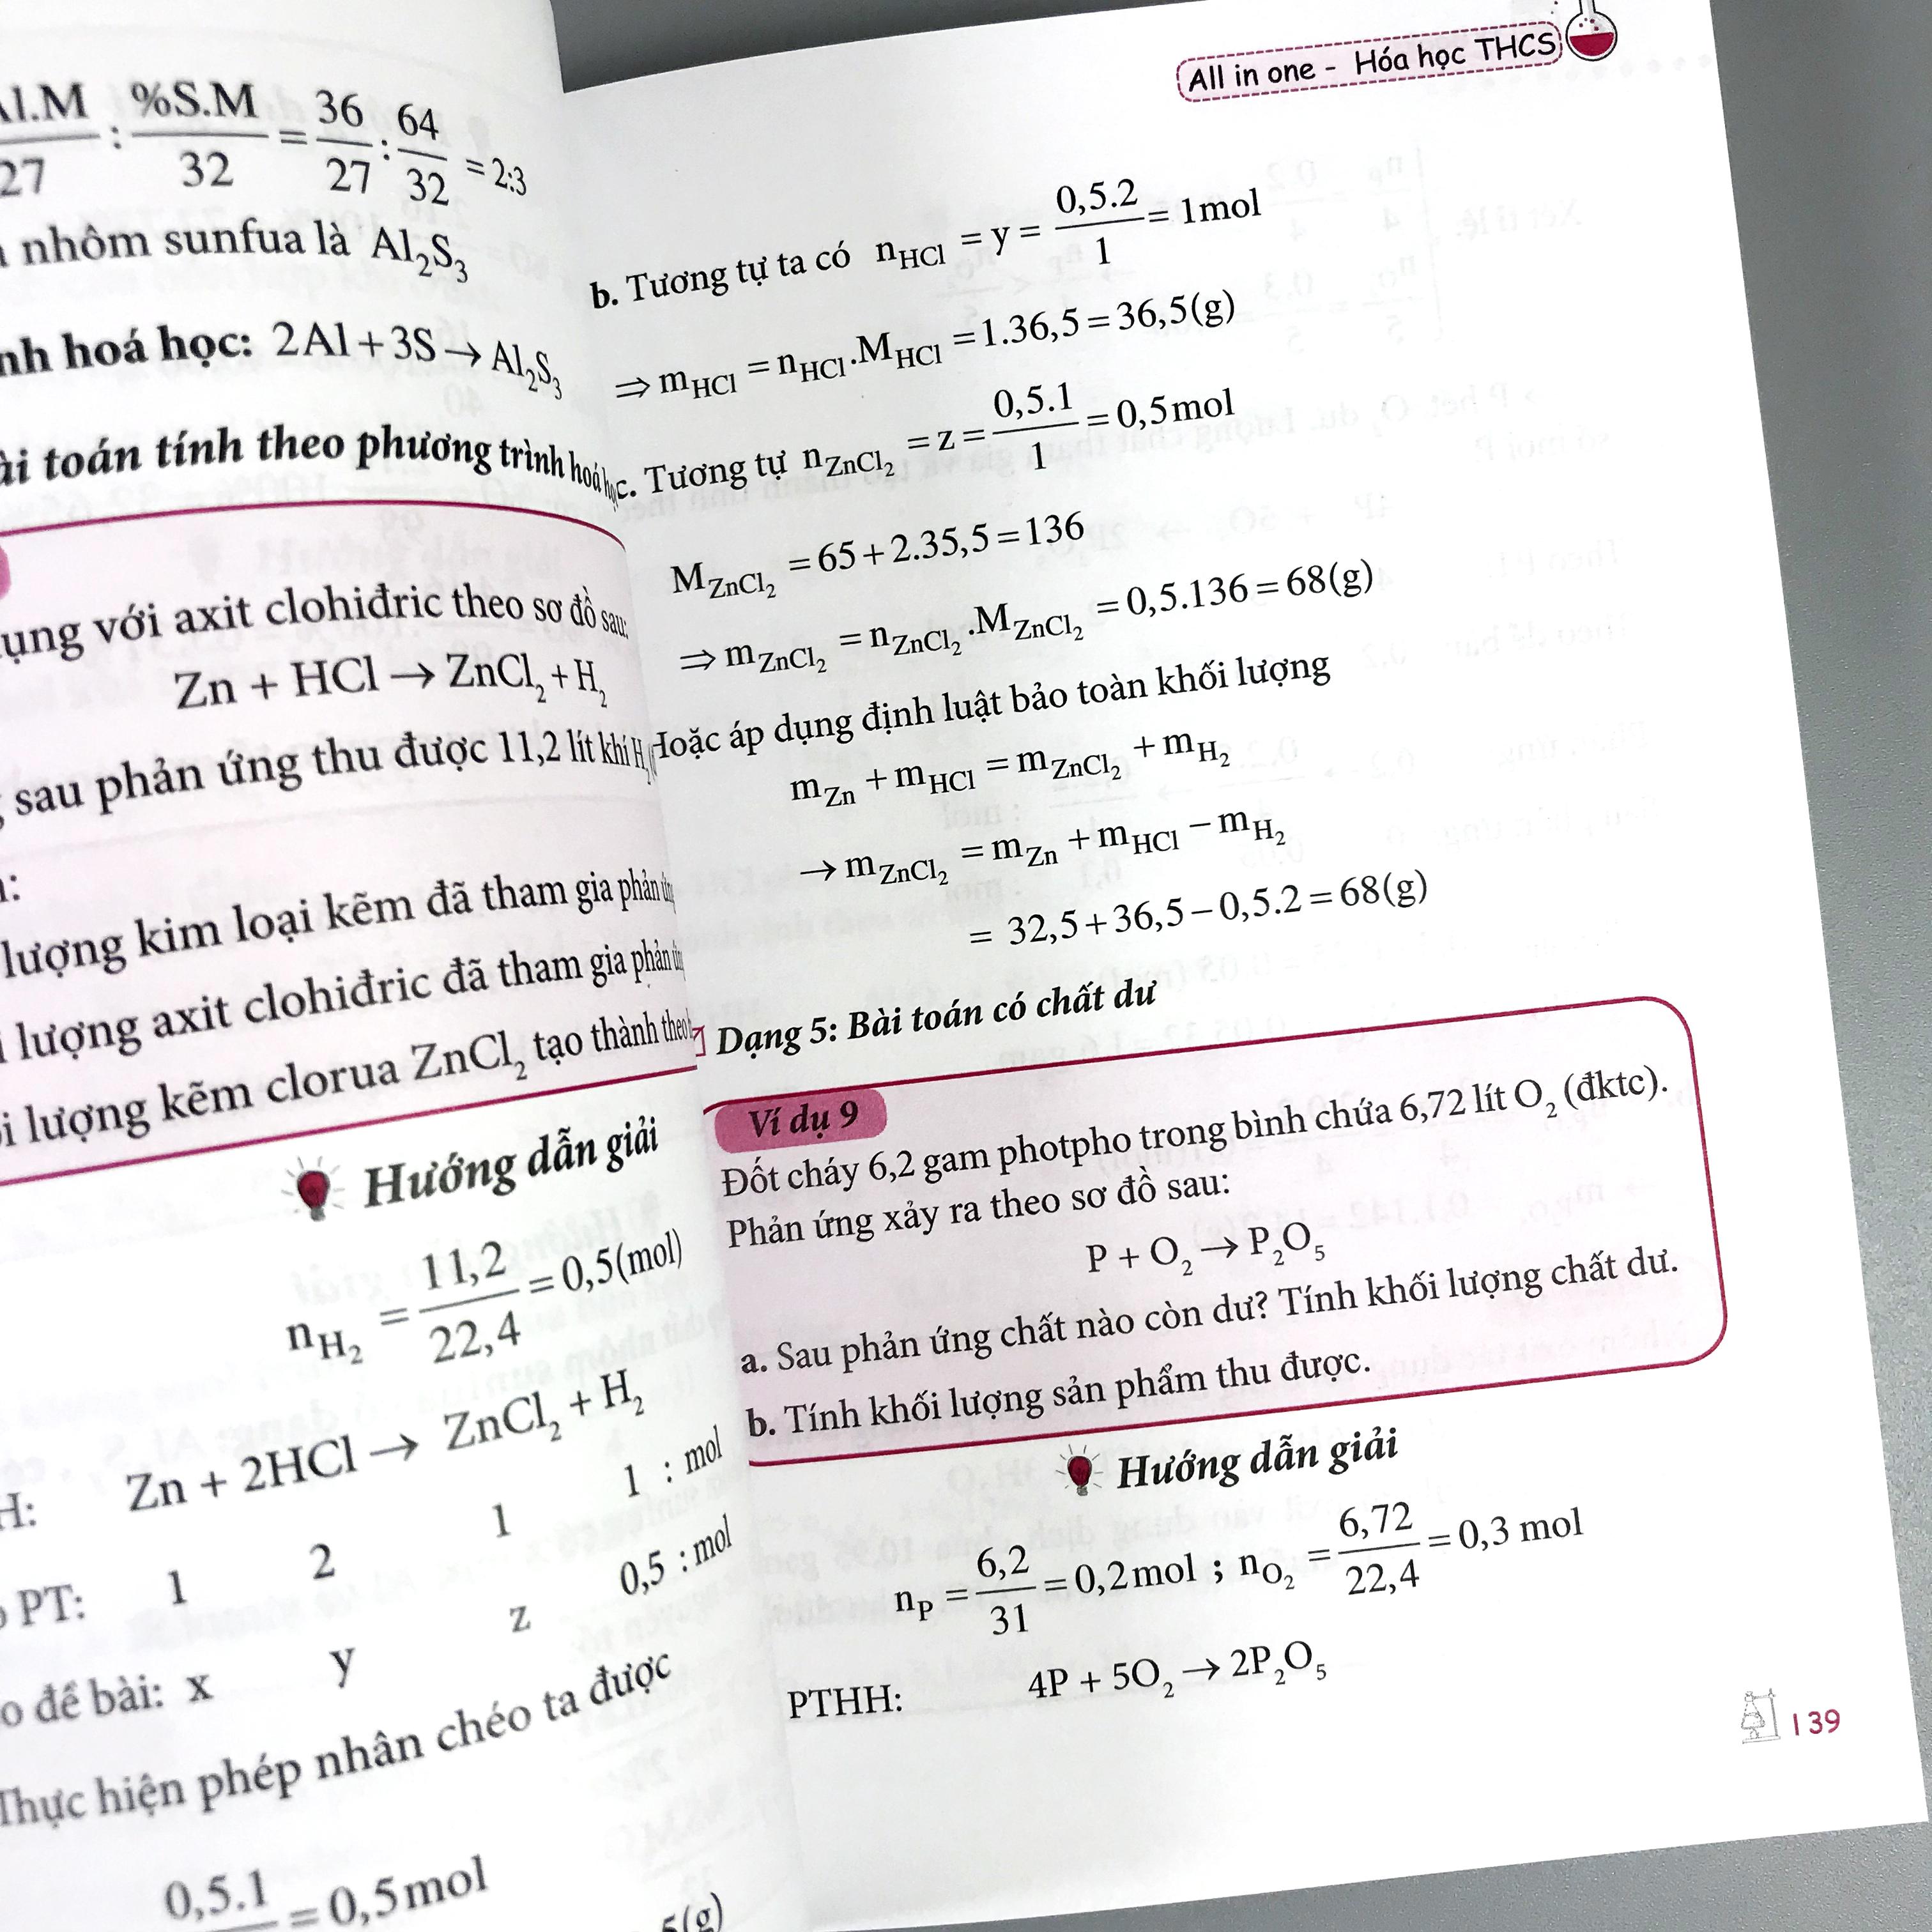 %S.M/32 = 36/27 : 64/32 = 2:3
nhôm sunfua là Al₂S₃
hoá học: 2Al + 3S → Al₂S₃
toán tính theo phương trình hoá học
với axit clohiđric theo sơ đồ sau:
Zn + HCl → ZnCl₂ + H₂
sau phản ứng thu được 11,2 lít khí H₂
lượng kim loại kẽm đã tham gia phản
lượng axit clohiđric đã tham gia phản
lượng kẽm clorua ZnCl₂ tạo thành theo
Hướng dẫn giải
n_H₂ = 11,2/22,4 = 0,5(mol)
Zn + 2HCl → ZnCl₂ + H₂
PT: 1 2 1 1 : mol
đề bài: x y z 0,5 : mol
Thực hiện phép nhân chéo ta được
0,5.1 = 0,5mol
(g)
All in one - Hóa học THCS
b. Tương tự ta có n_HCl = y = 0,5.2/1 = 1mol
⇒ m_HCl = n_HCl.M_HCl = 1.36,5 = 36,5(g)
c. Tương tự n_ZnCl₂ = z = 0,5.1/1 = 0,5mol
M_ZnCl₂ = 65 + 2.35,5 = 136
⇒ m_ZnCl₂ = n_ZnCl₂.M_ZnCl₂ = 0,5.136 = 68(g)
Hoặc áp dụng định luật bảo toàn khối lượng
m_Zn + m_HCl = m_ZnCl₂ + m_H₂
→ m_ZnCl₂ = m_Zn + m_HCl − m_H₂
= 32,5 + 36,5 − 0,5.2 = 68(g)
Dạng 5: Bài toán có chất dư
Ví dụ 9
Đốt cháy 6,2 gam photpho trong bình chứa 6,72 lít O₂ (đktc).
Phản ứng xảy ra theo sơ đồ sau:
P + O₂ → P₂O₅
a. Sau phản ứng chất nào còn dư? Tính khối lượng chất dư.
b. Tính khối lượng sản phẩm thu được.
Hướng dẫn giải
n_P = 6,2/31 = 0,2mol ; n_O₂ = 6,72/22,4 = 0,3 mol
PTHH: 4P + 5O₂ → 2P₂O₅
139